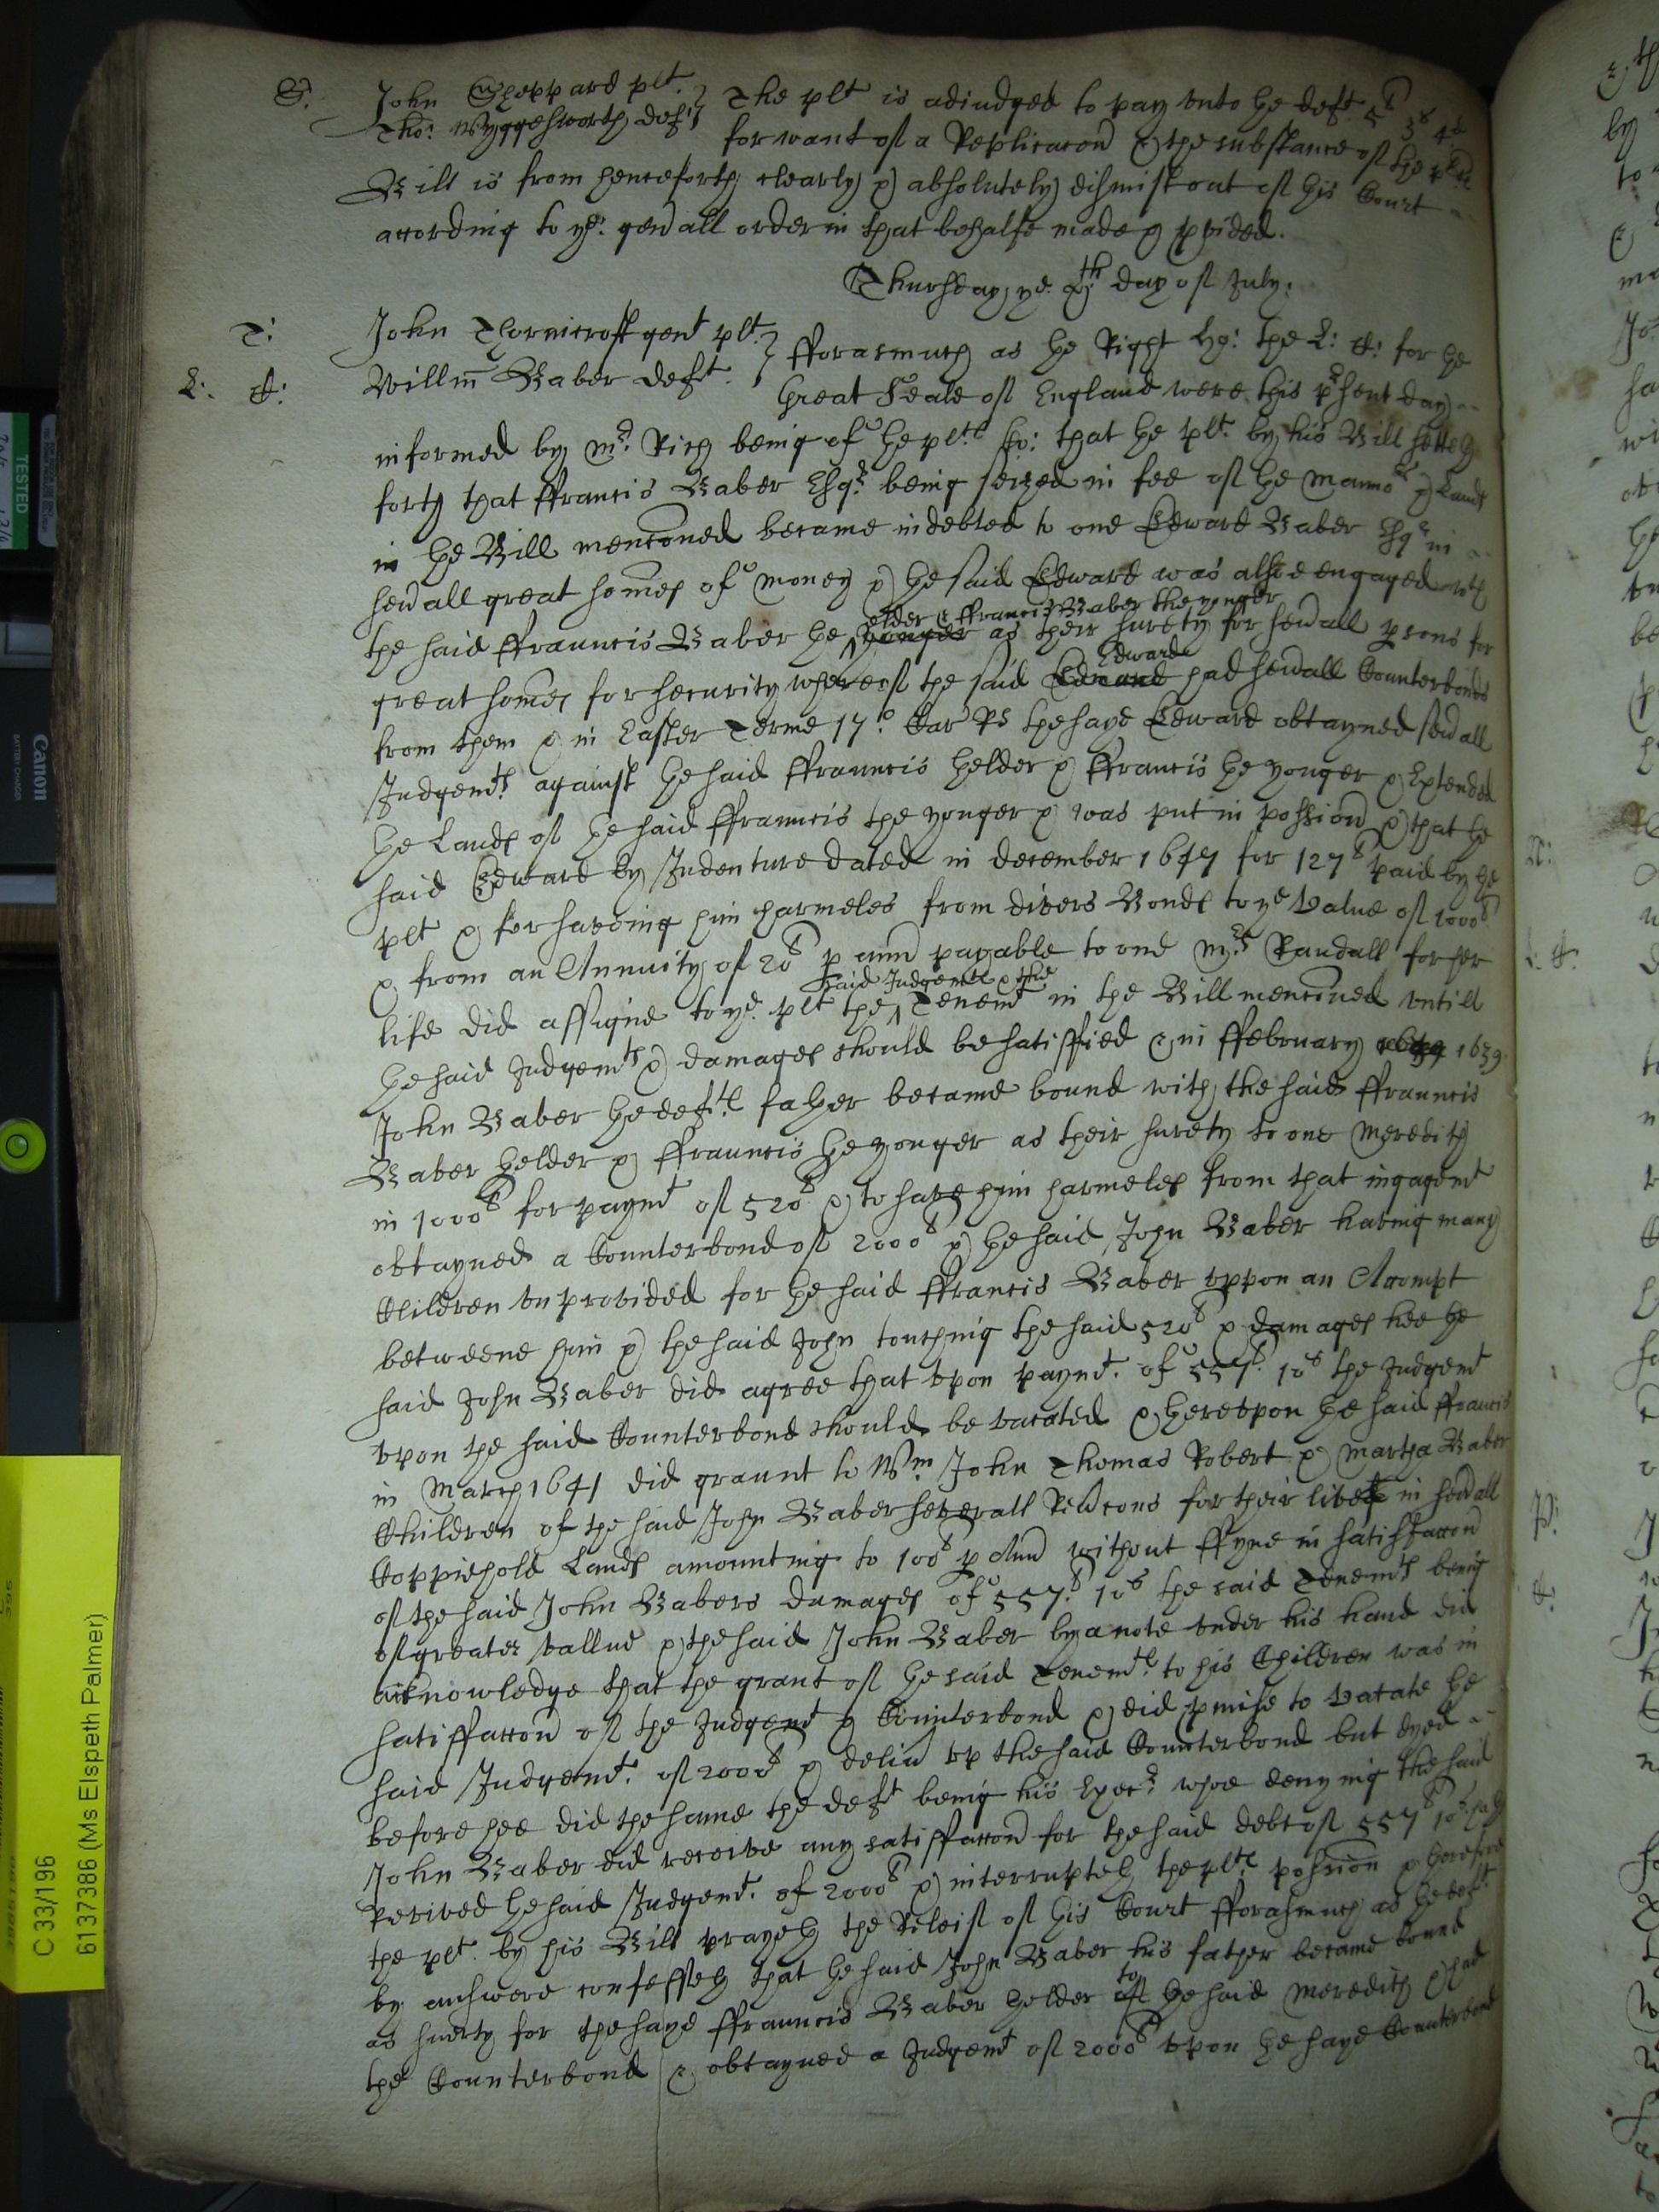 S. John Sheppard plt. } The plt is adiudged to pay vnto the deft. 5li 3s 4d
Tho: Wyggesworth deft } for want of a Replicacon & the substance of the plts
Bill is from henceforth clearly & absolutely dismist out of this Court
according to ye. genall order in that behalfe made & pvided.
Thursday ye. th day of July.
T: John Thornicroft gent plt. } fforasmuch as the Right ho: the L: C: for the
L: C: Willm Baber deft. } Great Seale of England were this psent day
informed by mr. Rich being of the plts Co: that the plt. by his Bill setteth
forth that ffrancis Baber Esqr. being seized in fee of the mannor & Lands
in the Bill menconed became indebted to one Edward Baber Esqr in
seuall great somes of money & the said Edward was alsoe engaged wth
elder & ffrancis Baber the yonger
the said ffrauncis Baber the yonger as their surety for seuall psons for
Edward
great somes for security whereof the said Edward had seuall Counterbonds
from them & in Easter Terme 17o. Car Rs the sayd Edward obtayned seuall
Judgemts. against the said ffrauncis thelder & ffrancis the yonger & Extended
the Lands of the said ffrauncis the yonger & was put in possion & that the
said Edward by Indenture dated in december 1647 for 127li paid by the
plt & for saveing him harmeles from divers Bonds to ye value of 1000li
& from an Annuity of 20li p ann payable to one mrs. Randall for her
said Judgemts & the
life did assigne to ye. plt the Tenemts in the Bill menconed vntill
the said Judgemts & damages should be satisfied & in ffebruary 1639.
John Baber the defts father became bound with the said ffrauncis
Baber thelder & ffrauncis the yonger as their surety to one Meredith
in 1000li for paymt of 520li & to save him harmeles from that ingagemt
obtayned a Counterbond of 2000li & the said John Baber having many
Children vnprovided for the said ffrancis Baber vppon an Accompt
betweene him & the said John touching the said 520li & damages hee the
said John Baber did agree that vpon paymt. of 557li. 10s the Judgemt
vpon the said Counterbond should be vacated & therevpon the said ffrancis
in March 1641 did graunt to Wm John Thomas Robert & Martha Baber
Children of the said John Baber severall Reucons for their lives in seuall
Coppiehold Lands amounting to 100li p Ann without ffyne in satisfaccon
of the said John Babers damages of 557li. 10s the said Tenemts being
of greater vallue & the said John Baber by a note vnder his hand did
acknowledge that the grant of the said Tenemts. to his Children was in
satisfaccon of the Judgemt & Counterbond & did pmise to vacate the
said Judgemt. of 2000li & deliu vp the said Counterbond but dyed
before hee did the same the deft being his Execr. whoe denying the said
John Baber did receive any satisfaccon for the said debt of 557li 10s. hath
Revived the said Judgemt. of 2000li & interrupteth the plts possion & therefore
the plt. by his Bill prayeth the Releife of this Court fforasmuch as the deft
by answere confesseth that the said John Baber his father became bound
to
as suerty for the sayd ffrauncis Baber thelder of the said Meredith & had
the Counterbond & obtayned a Judgemt of 2000li vpon the sayd Counterbond
C 33/196
6137386 (Ms Elspeth Palmer)
Canon
BATTERY CHARGER
TESTED